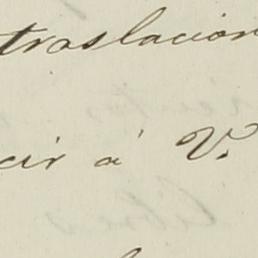 traslacion
cir á V.